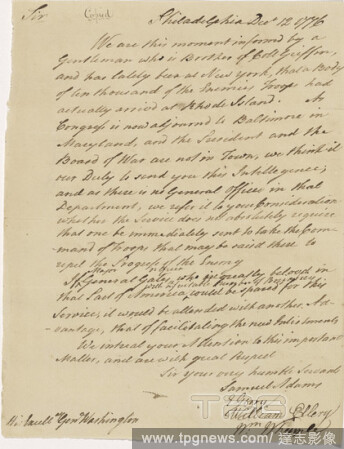 Sir
Copied
Philadelphia Decr 12 1776
We are this moment informed by a
Gentleman who is Brother of Colo Griffin,
and has lately been at New york, that a Body
of ten thousand of the Enemies Troops had
actually arrived at Rhode Island. As
Congress is now adjourned to Baltimore in
Maryland, and the President and the
Board of War are not in Town, we think it
our Duty to send you this Intelligence;
and as there is no General officer in that
Department, we refer it to your Consideration
whether the Service does not absolutely require
that one be immediately sent to take the Com-
mand of Troops that may be raised there to
repel the Progress of the Enemy
If Major General Gates who is greatly beloved in
with a suitable Number of
that Part of America could be spared for this
Service, it would be attended with another Ad-
vantage, that of facilitating the new Inlistments
We intreat your Attention to this important
Matter, and are with great Respect
Sir your very humble Servants
Samuel Adams
E Gerry
William Ellery
Wm Whipple
Genl Washington
TPG
www.tpgnews.com 達志影像